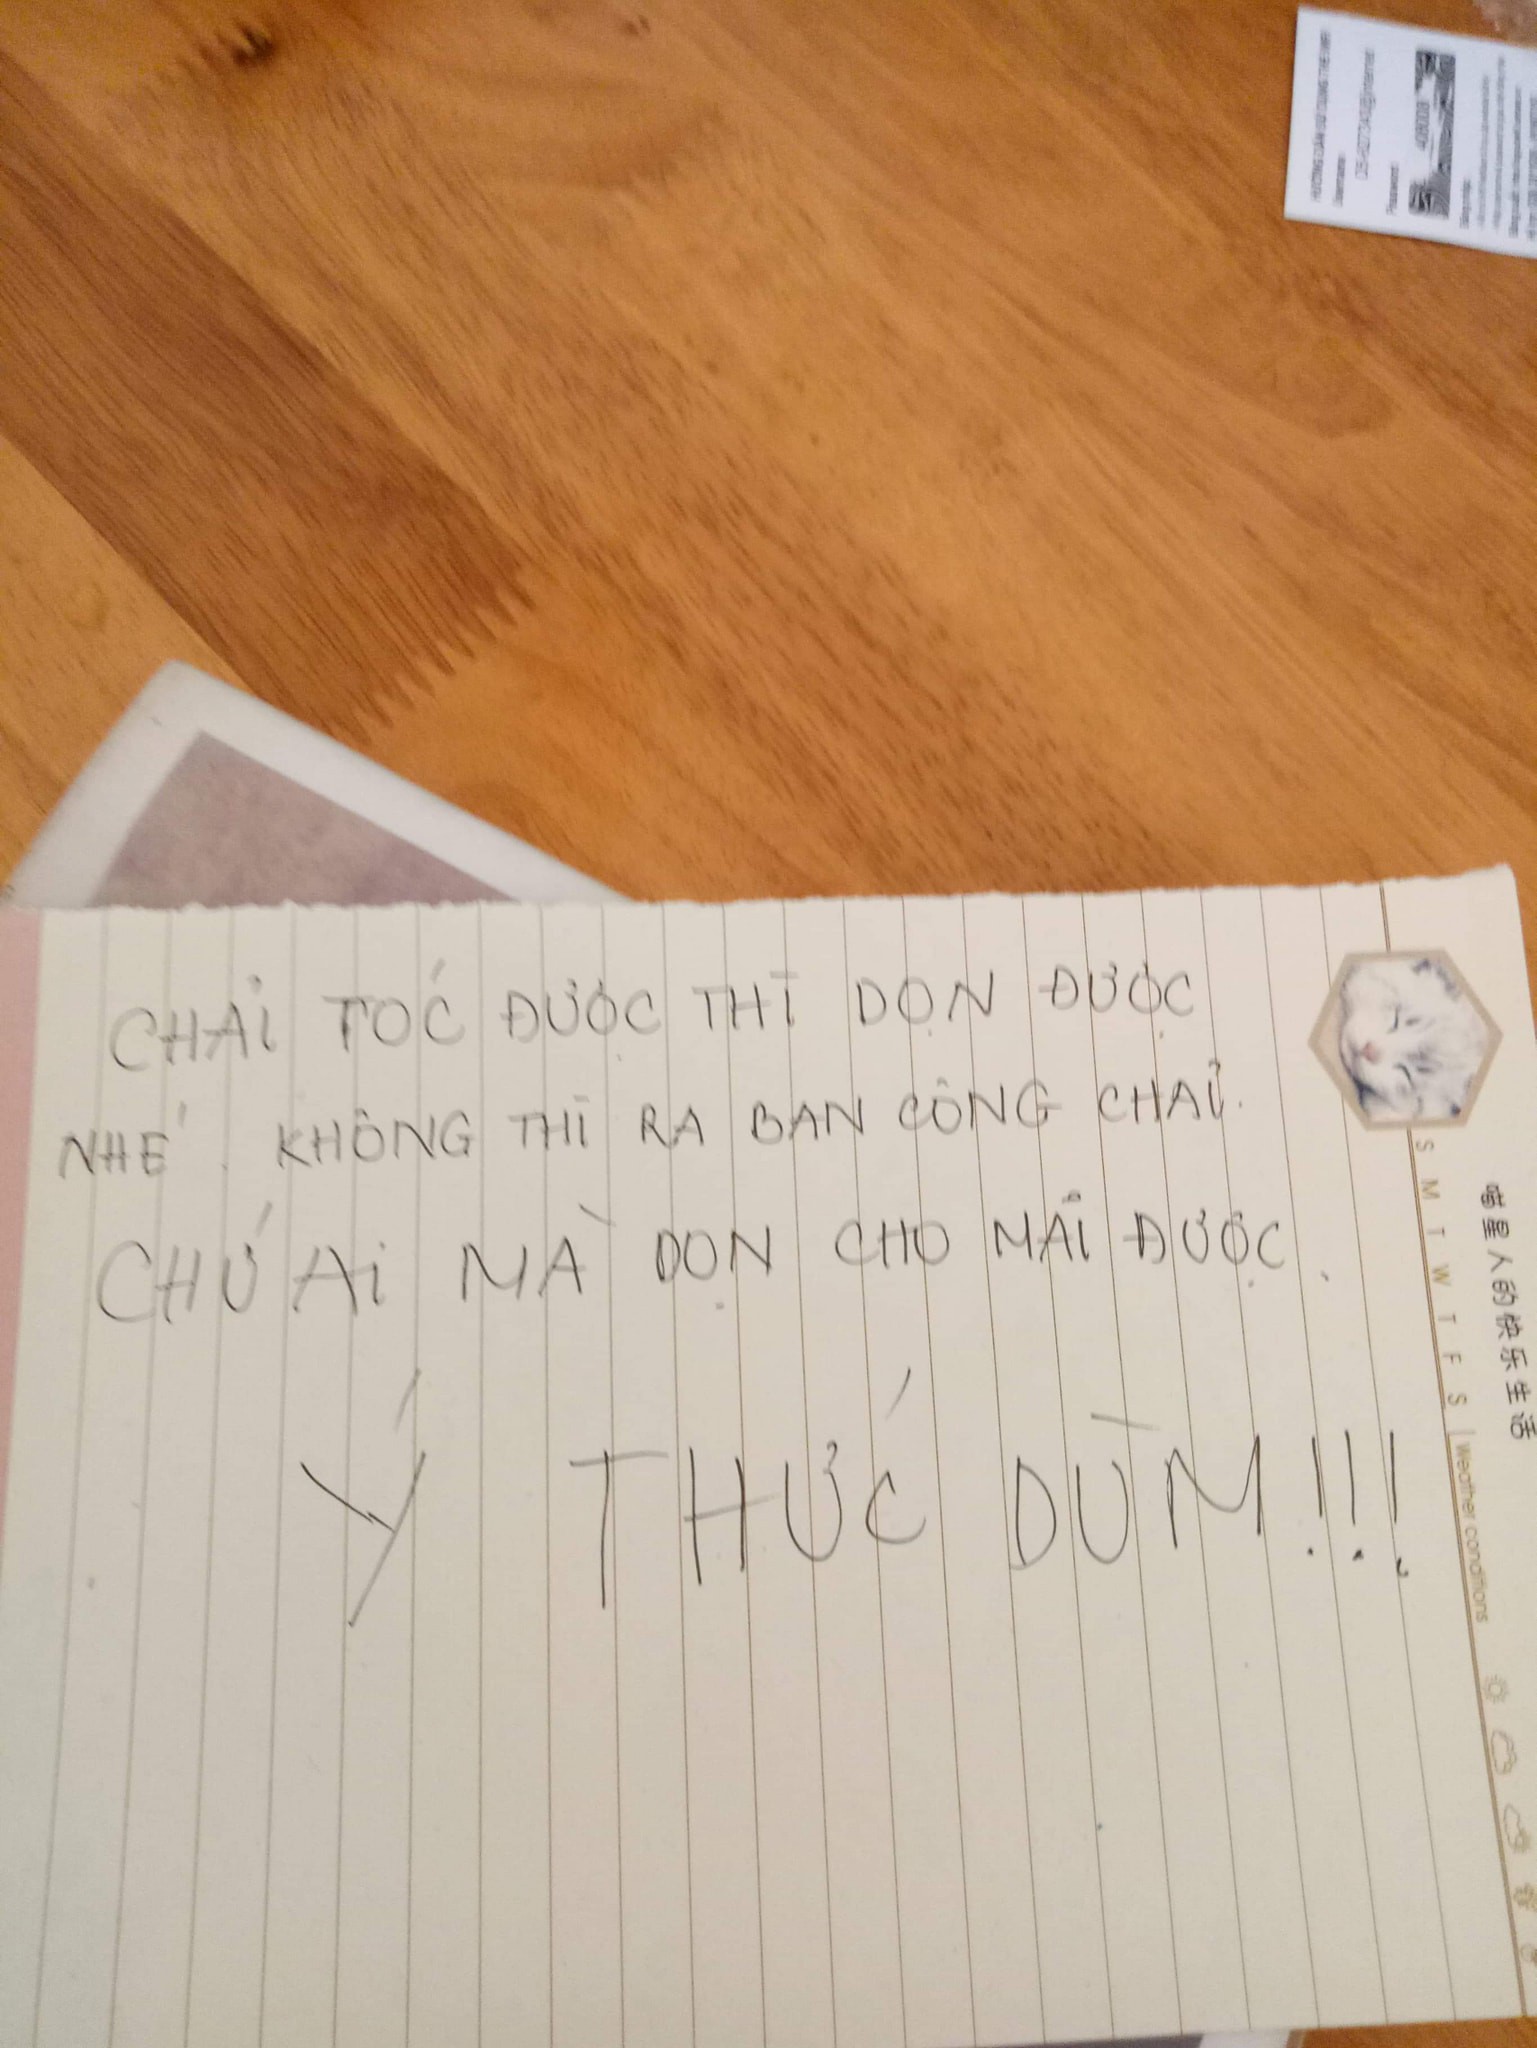 CHẢI TÓC ĐƯỢC THÌ DỌN ĐƯỢC
NHÉ. KHÔNG THÌ RA BAN CÔNG CHẢI.
CHỨ AI MÀ DỌN CHO MÃI ĐƯỢC.
Ý THỨC DÙM!!!
喵星人的快乐生活
S M T W T F S | Weather conditions
Username:
Password: